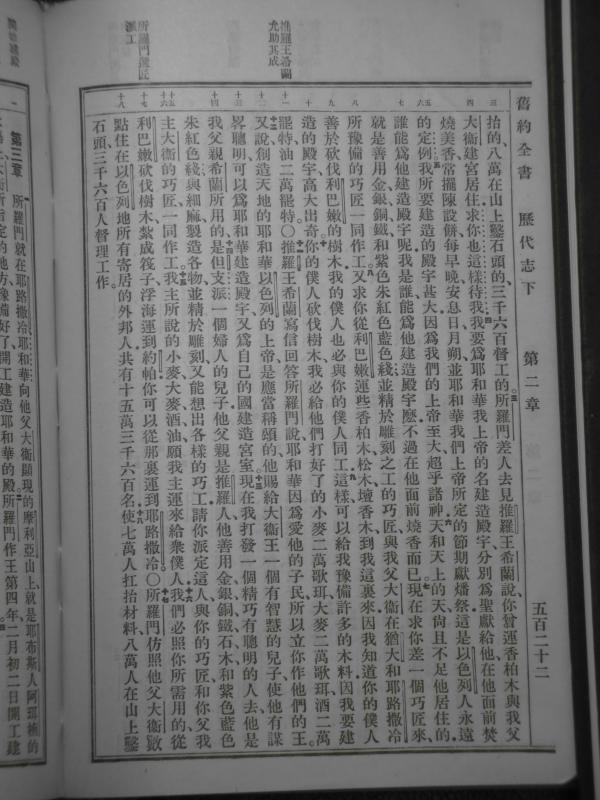 舊約全書 歷代志下 第二章 五百二十二
抬的八萬在山上鑿石頭的三千六百督工的所羅門差人去見推羅王希蘭說你曾運香柏木與我父
大衞建宮居住求你也這樣待我我要爲耶和華我上帝的名建造殿宇分別爲聖獻給他在他面前焚
燒美香常擺陳設餅每早晚安息日月朔並耶和華我們上帝所定的節期獻燔祭這是以色列人永遠
的定例我所要建造的殿宇甚大因爲我們的上帝至大超乎諸神天和天上的天尙且不足他居住的
誰能爲他建造殿宇呢我是誰能爲他建造殿宇麽不過在他面前燒香而已現在求你差一個巧匠來
就是善用金銀銅鐵和紫色朱紅色藍色綫並精於雕刻之工的巧匠與我父大衞在猶大和耶路撒冷
所豫備的巧匠一同作工又求你從利巴嫩運些香柏木松木壇香木到我這裏來因我知道你的僕人
善於砍伐利巴嫩的樹木我的僕人也必與你的僕人同工這樣可以給我豫備許多的木料因我要建
造的殿宇高大出奇你的僕人砍伐樹木我必給他們打好了的小麥二萬歌珥大麥二萬歌珥酒二萬
罷特油二萬罷特○推羅王希蘭寫信回答所羅門說耶和華因爲愛他的子民所以立你作他們的王
又說創造天地的耶和華以色列的上帝是應當稱頌的他賜給大衞王一個有智慧的兒子使他有謀
畧聰明可以爲耶和華建造殿宇又爲自己的國建造宮室現在我打發一個精巧有聰明的人去他是
我父親希蘭所用的是但支派一個婦人的兒子他父親是推羅人他善用金銀銅鐵石木和紫色藍色
朱紅色綫與細麻製造各物並精於雕刻又能想出各樣的巧工請你派定這人與你的巧匠和你父我
主大衞的巧匠一同作工我主所說的小麥大麥酒油願我主運來給衆僕人我們必照你所需用的從
利巴嫩砍伐樹木紮成筏子浮海運到約帕你可以從那裏運到耶路撒冷○所羅門仿照他父大衞數
點住在以色列地所有寄居的外邦人共有十五萬三千六百名使七萬人扛抬材料八萬人在山上鑿
石頭三千六百人督理工作
第三章 所羅門就在耶路撒冷耶和華向他父大衞顯現的摩利亞山上就是耶布斯人阿珥楠的
推羅王希蘭
允助其成